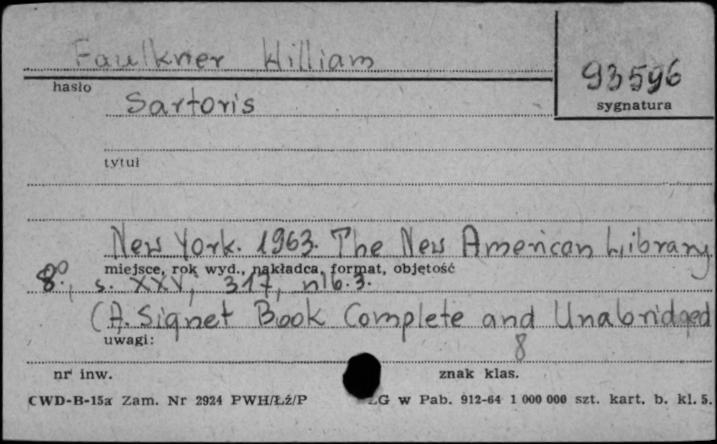 Faulkner William
93596
hasło
sygnatura
Sartoris
tytuł
New York. 1963. The New American Library
miejsce, rok wyd., nakładca, format, objętość
8°., s. XXV, 317, nlb. 3.
(A. Signet Book Complete and Unabridged
uwagi:
8
nr inw.
znak klas.
CWD-B-15a Zam. Nr 2924 PWH/Łź/P ŁG w Pab. 912-64 1 000 000 szt. kart. b. kl. 5.